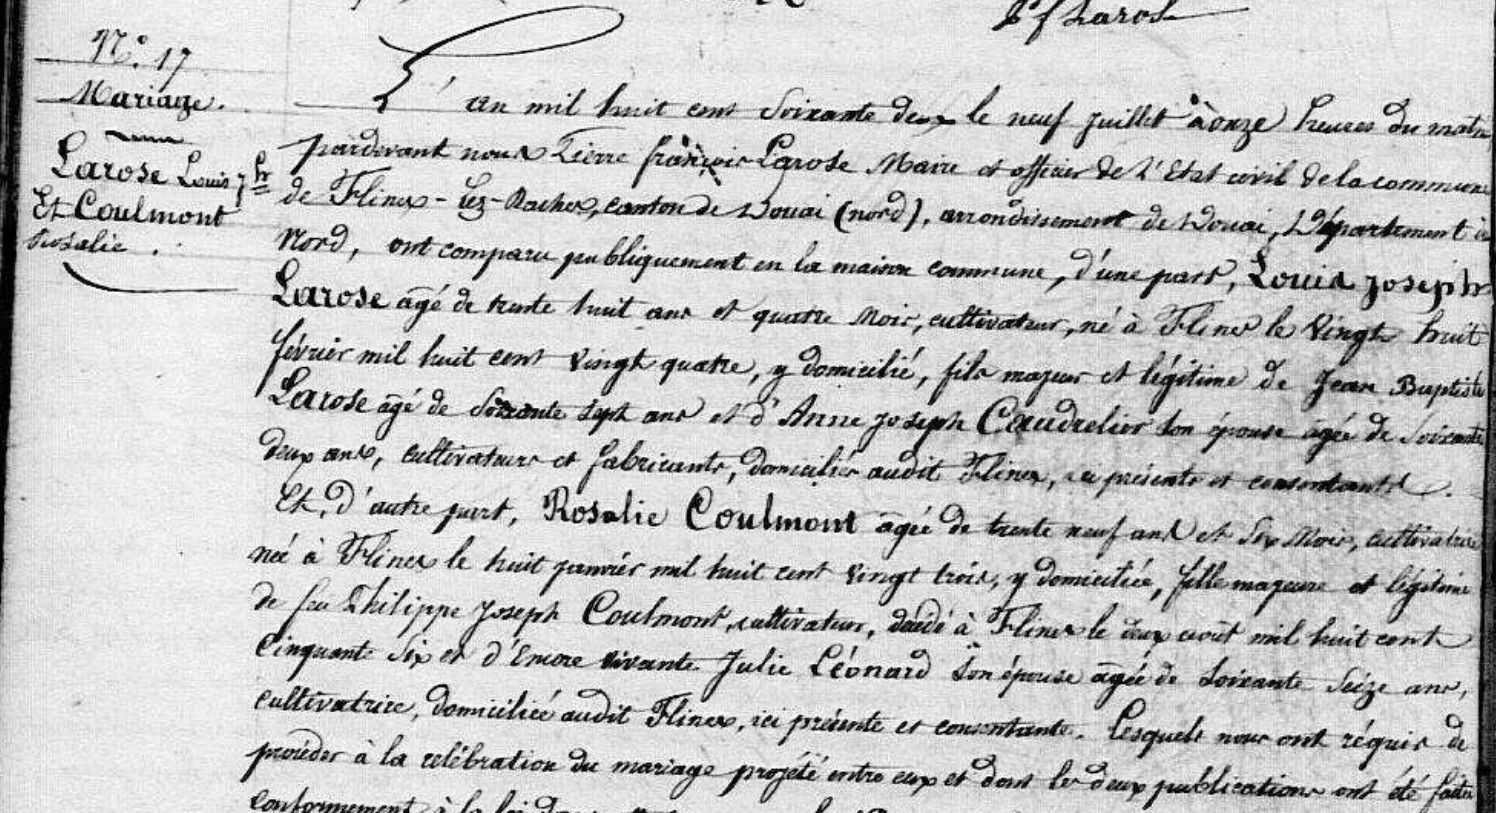 P f Larose
N.° 17
Mariage.
Larose Louis Jph
Et Coulmont
Rosalie.
L'an mil huit cent soixante deux le neuf juillet à onze heures du matin
pardevant nous Pierre françois Larose Maire et officier de l'Etat civil de la commune
de Flines-lez-Raches, canton de Douai (nord), arrondissement de Douai, Département du
Nord, ont comparu publiquement en la maison commune, d'une part, Louis Joseph
Larose agé de trente huit ans et quatre Mois, cultivateur, né à Flines le Vingt huit
février mil huit cent Vingt quatre, y domicilié, fils majeur et légitime de Jean Baptiste
Larose agé de Soixante Sept ans et d'Anne Joseph Caudrelier son épouse agée de Soixante
deux ans, cultivateurs et fabricants, domiciliés audit Flines, ici présents et consentants.
Et, d'autre part, Rosalie Coulmont agée de trente neuf ans et Six Mois, cultivatrice
née à Flines le huit janvier mil huit cent Vingt trois, y domiciliée, fille majeure et légitime
de feu Philippe Joseph Coulmont, cultivateur, décédé à Flines le deux août mil huit cent
Cinquante Six et d'Encore vivante Julie Léonard Son épouse agée de soixante Seize ans,
cultivatrice, domiciliée audit Flines, ici présente et consentante. Lesquels nous ont réquis de
procéder à la celébration du mariage projété entre eux et dont les deux publications ont été faites
conformement à la loi